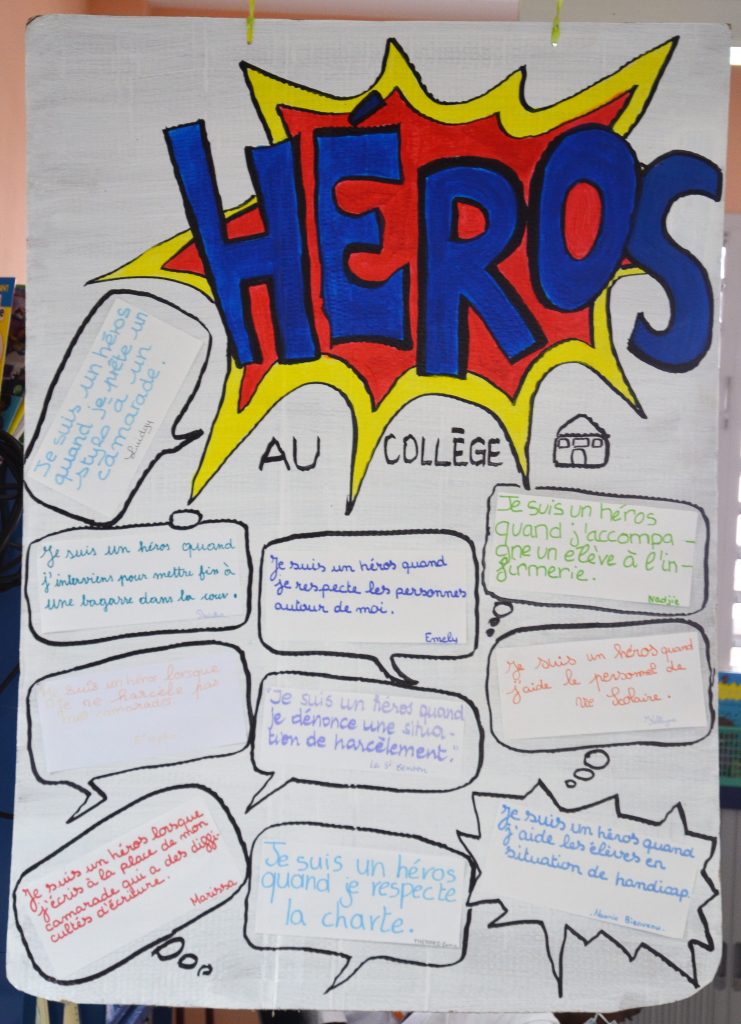 HÉROS
AU COLLÈGE
Je suis un héros
quand je prête un
stylo à un
camarade.
Je suis un héros quand
j'interviens pour mettre fin à
une bagarre dans la cour.
Je suis un héros quand
je respecte les personnes
autour de moi.
Emely
Je suis un héros
quand j'accompa-
gne un élève à l'in-
firmerie.
Nadjie
Je suis un héros lorsque
je ne harcèle pas
mes camarades
"Je suis un héros quand
je dénonce une situa-
tion de harcèlement."
Je suis un héros quand
j'aide le personnel de
vie Scolaire.
Je suis un héros lorsque
j'écris à la place de mon
camarade qui a des diffi-
cultés d'écriture.
Marissa
Je suis un héros
quand je respecte
la charte.
Je suis un héros quand
j'aide les élèves en
situation de handicap